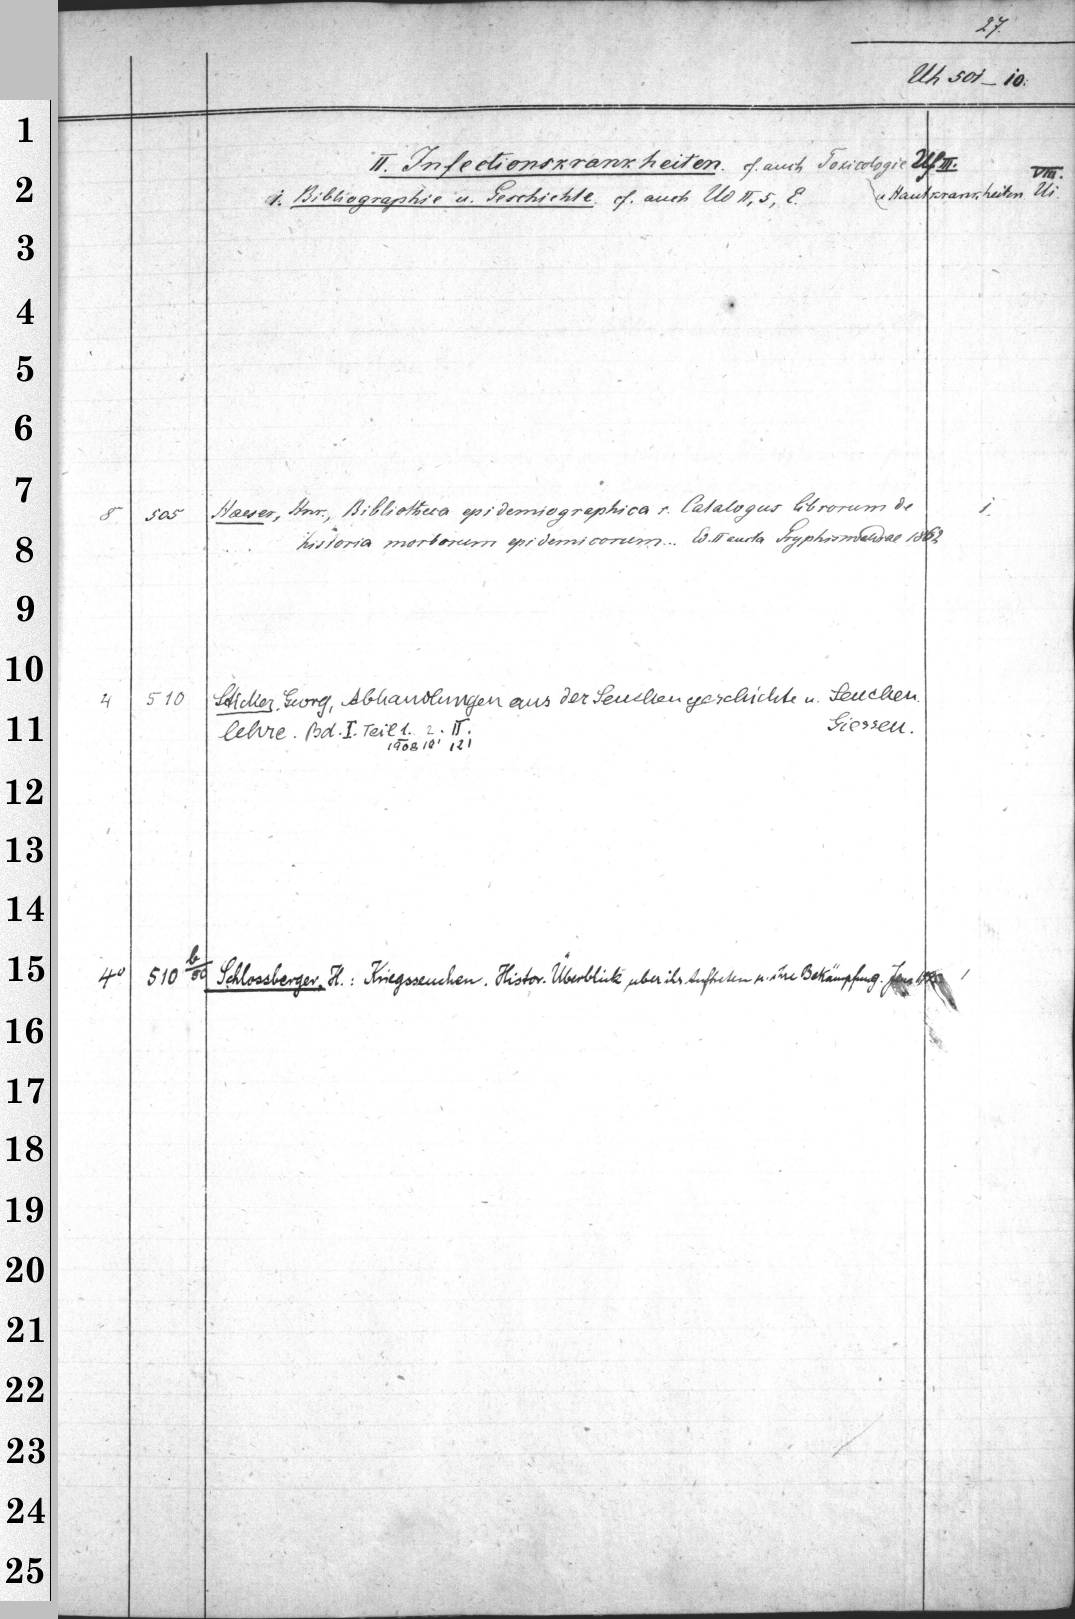 27.
Uh 501–10.
II. Infectionskrankheiten. cf. auch Toxicologie Uf III.
1. Bibliographie u. Geschichte. cf. auch Ud II, 5, E. u Hautkrankheiten Ui VIII.
8 505 Haeser, Hnr., Bibliotheca epidemiographica s. Catalogus librorum de 1.
historia morborum epidemicorum... Ed. II aucta Gryphiswaldae 1862
4 510 Sticker, Georg, Abhandlungen aus der Seuchengeschichte u. Seuchen
lehre. Bd. I. Teil 1. 2. II. Giessen.
1908 10 12
4° 510 b/50 Schlossberger, H.: Kriegsseuchen. Histor. Überblick über ihr Auftreten u. ihre Bekämpfung. Jena
1
2
3
4
5
6
7
8
9
10
11
12
13
14
15
16
17
18
19
20
21
22
23
24
25